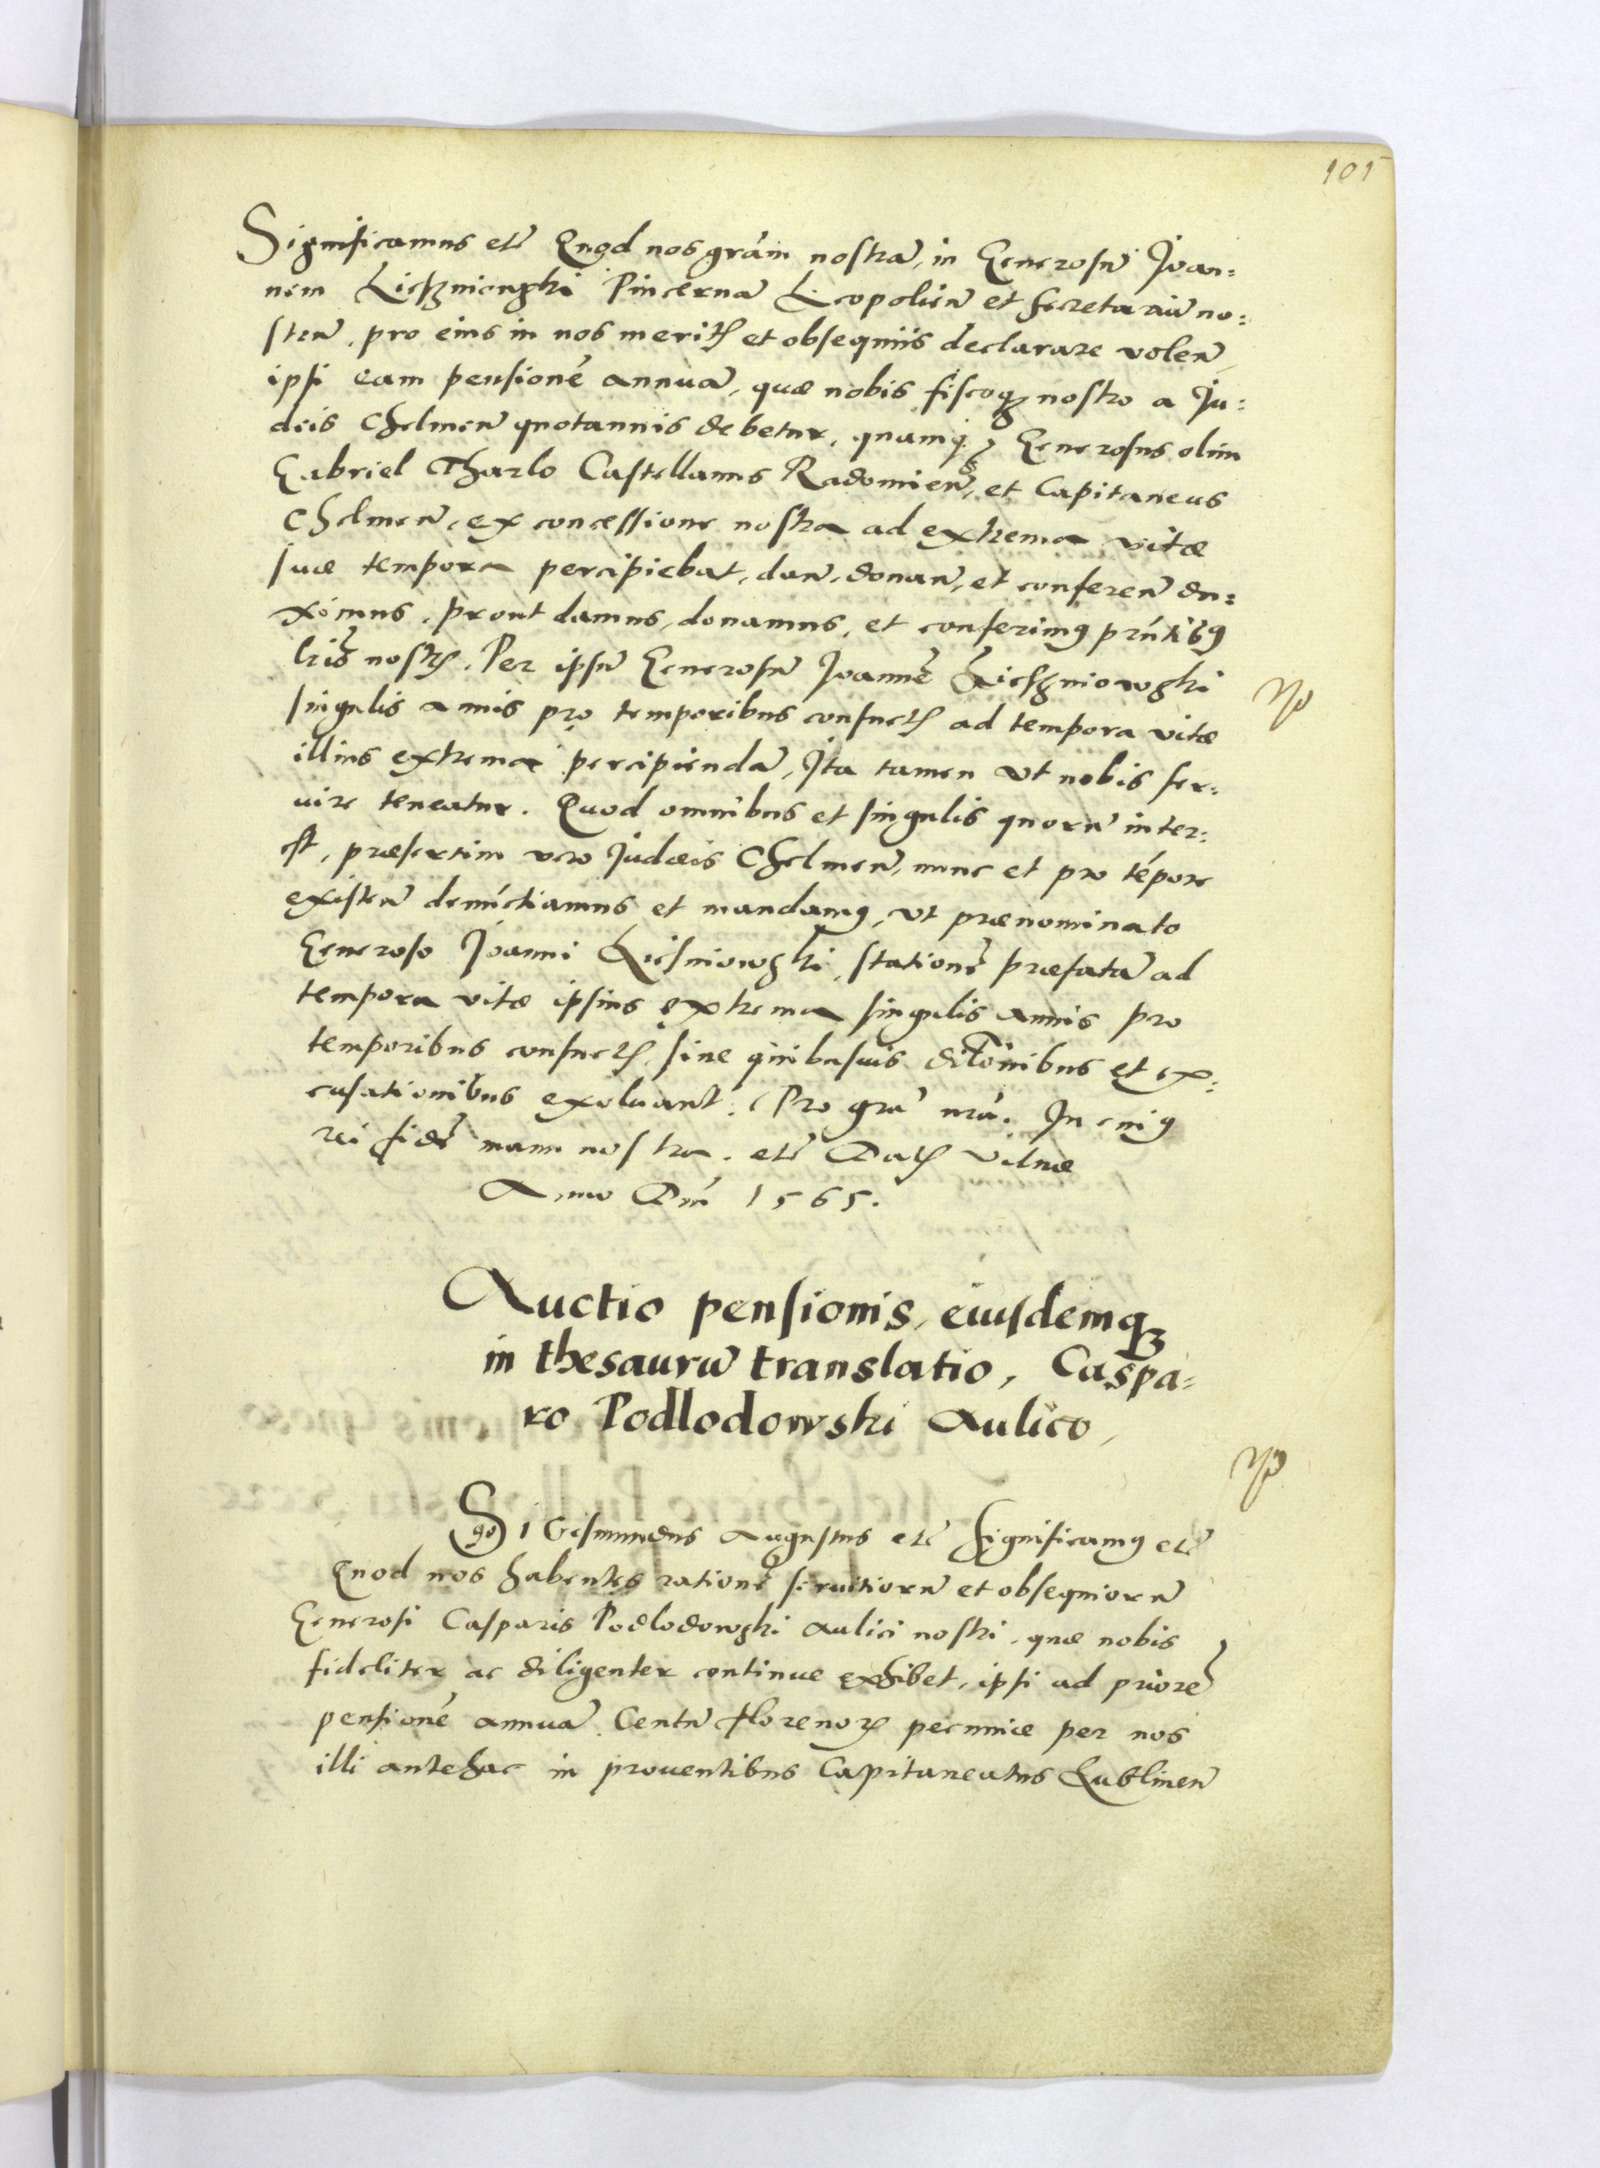 101
Significamus etc̃ Quod nos gr̃am nostrã, in Generosũ Joan=
nem Lieszniowski Pincernã Leopolieñ et Secretariũ no=
strũ, pro eius in nos meritis et obsequiis declarare voleñ,
ipsi eam pensionẽ annuã, quæ nobis fiscoq3 nostro a Ju=
deis Chelmeñ quotannis debetur, quamq3 Generosus olim
Gabriel Tharlo Castellanus Radomieñ, et Capitaneus
Chelmeñ, ex concessione nostra ad extrema vitæ
suæ tempora percipiebat, dañ, donañ, et confereñ du=
ximus, prout damus, donamus, et conferimus pr̃ntibus
lr̃is nostris. Per ipsũ Generosũ Joannẽ Lieszniowski
singulis annis pro temporibus consuetis ad tempora vitæ
illius extrema percipiendã, Ita tamen vt nobis ser=
uire teneatur. Quod omnibus et singulis quorũ inter=
est, præsertim vero Judæis Chelmeñ, nunc et pro tẽpore
existeñ denũctiamus et mandamus, vt prænominato
Generoso Joanni Liesniowski, stationẽ præfatã ad
tempora vitæ ipsius extrema singulis annis pro
temporibus consuetis, sine quibusuis dil̃onibus et ex=
cusationibus exoluant. Pro gr̃a nr̃a. In cuius
rei fidẽ manu nostra. etc̃ Datis Vilnæ
Anno Dñi 1565.
Auctio pensionis, eiusdemq3
in thesaurũ translatio, Caspa=
ro Podlodowski Aulico,
Sigismundus Augustus etc̃ Significamus etc̃
Quod nos habentes rationẽ seruitiorũ et obsequiorũ
Generosi Casparis Podlodowski Aulici nostri, quæ nobis
fideliter ac diligenter continue exhibet, ipsi ad priorẽ
pensionẽ annuã Centũ florenorum pecuniæ per nos
illi antehac in prouentibus Capitaneatus Lublineñ